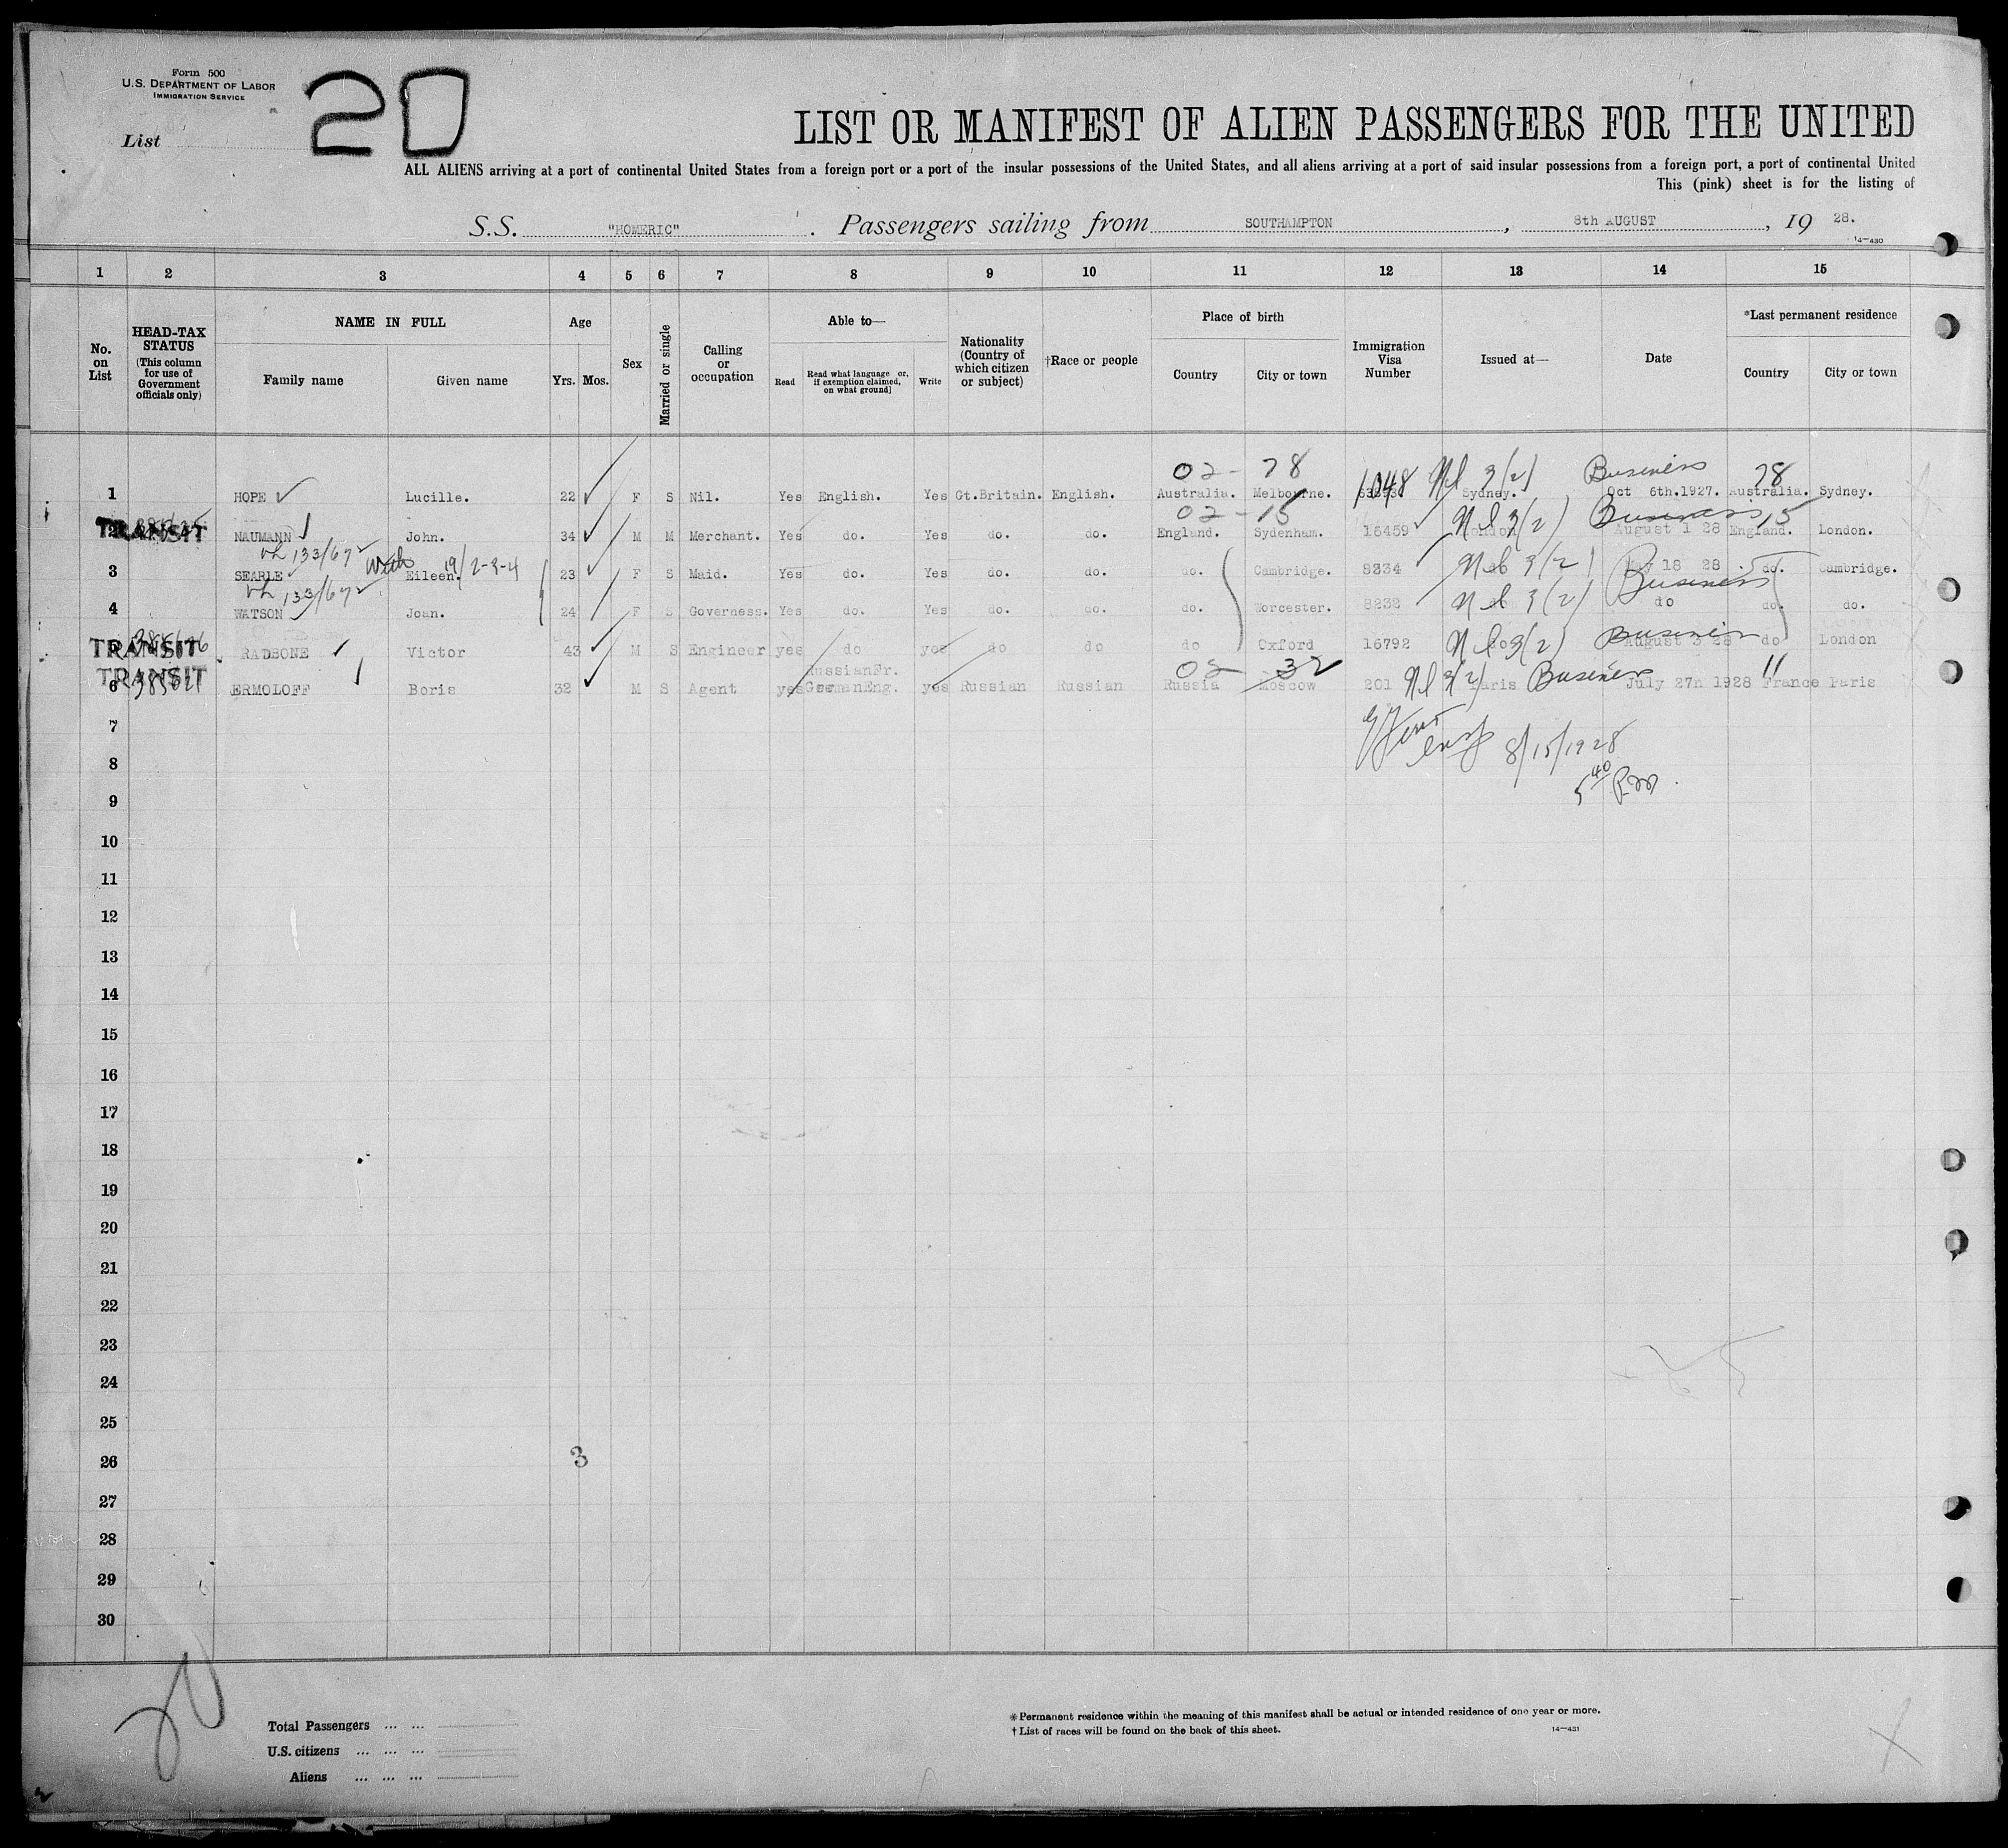 Form 500
U.S. DEPARTMENT OF LABOR
IMMIGRATION SERVICE
List 20
LIST OR MANIFEST OF ALIEN PASSENGERS FOR THE UNITED
ALL ALIENS arriving at a port of continental United States from a foreign port or a port of the insular possessions of the United States, and all aliens arriving at a port of said insular possessions from a foreign port, a port of continental United
This (pink) sheet is for the listing of
S.S. "HOMERIC". Passengers sailing from SOUTHAMPTON, 8th AUGUST, 19 28.
14-430
1 2 3 4 5 6 7 8 9 10 11 12 13 14 15
No. on List
HEAD-TAX STATUS (This column for use of Government officials only)
NAME IN FULL
Family name Given name
Age
Yrs. Mos.
Sex
Married or single
Calling or occupation
Able to—
Read
Read what language or, if exemption claimed, on what ground]
Write
Nationality (Country of which citizen or subject)
†Race or people
Place of birth
Country City or town
Immigration Visa Number
Issued at—
Date
*Last permanent residence
Country City or town
02 - 78 1048 3(2) Business 78
1 HOPE Lucille. 22 F S Nil. Yes English. Yes Gt.Britain. English. Australia. Melbourne. Sydney. Oct 6th.1927. Australia. Sydney.
02 - 15 3(2) Business 15
TRANSIT
2 NAUMANN John. 34 M M Merchant. Yes do. Yes do. do. England. Sydenham. 16459 London August 1 28 England. London.
133/672 with 19/2-3-4
3 SEARLE Eileen. 23 F S Maid. Yes do. Yes do. do. do. Cambridge. 8234 3(2) 18 28 do. Cambridge.
133/672 Business
4 WATSON Joan. 24 F S Governess. Yes do. Yes do. do. do. Worcester. 8232 3(2) do do. do.
TRANSIT
RADBONE Victor 43 M S Engineer yes do yes do do do Oxford 16792 3(2) Business August 3 28 do London
TRANSIT
Russian Fr. 02 - 32 11
6 ERMOLOFF Boris 32 M S Agent yes German Eng. yes Russian Russian Russia Moscow 201 3(2) Paris Business July 27h 1928 France Paris
7
8/15/1928
8
5 40 P.m.
9
10
11
12
13
14
15
16
17
18
19
20
21
22
23
24
25
26 3
27
28
29
30
20
Total Passengers ... ...
U.S. citizens ... ... ...
Aliens ... ... ...
*Permanent residence within the meaning of this manifest shall be actual or intended residence of one year or more.
†List of races will be found on the back of this sheet.
14-431
X